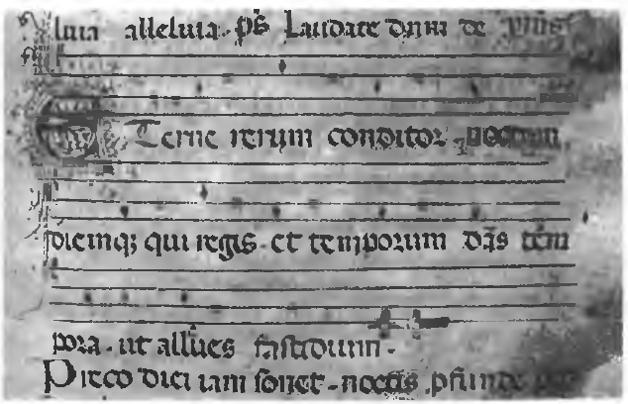 luia alleluia. ps Laudate dnm de
Eterne rerum conditor noctem
diemq; qui regis et temporum das tem
pora. ut alleues fastidium.
Preco diei iam sonet. noctis pfunde